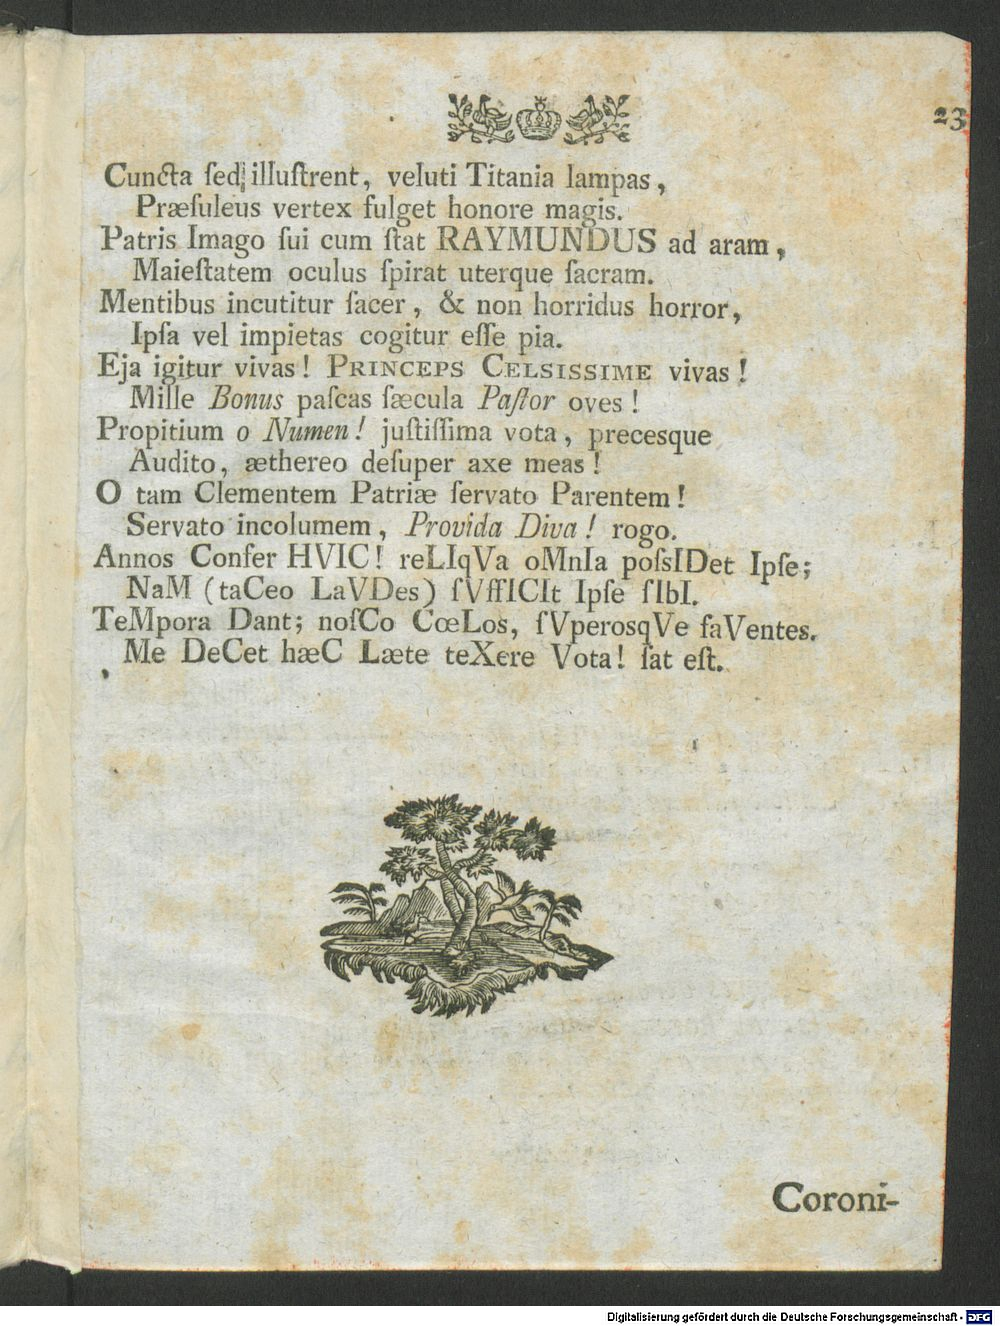 23
Cuncta ſed illuſtrent, veluti Titania lampas,
Præſuleus vertex fulget honore magis.
Patris Imago ſui cum ſtat RAYMUNDUS ad aram,
Maieſtatem oculus ſpirat uterque ſacram.
Mentibus incutitur ſacer, & non horridus horror,
Ipſa vel impietas cogitur eſſe pia.
Eja igitur vivas! PRINCEPS CELSISSIME vivas!
Mille Bonus paſcas ſæcula Paſtor oves!
Propitium o Numen! juſtiſſima vota, precesque
Audito, æthereo deſuper axe meas!
O tam Clementem Patriæ ſervato Parentem!
Servato incolumem, Provida Diva! rogo.
Annos Confer HVIC! reLIqVa oMnIa poſsIDet Ipſe;
NaM (taCeo LaVDes) ſVffICIt Ipſe ſIbI.
TeMpora Dant; noſCo CœLos, ſVperosqVe faVentes.
Me DeCet hæC Læte teXere Vota! ſat eſt.
Coroni-
Digitalisierung gefördert durch die Deutsche Forschungsgemeinschaft - DFG